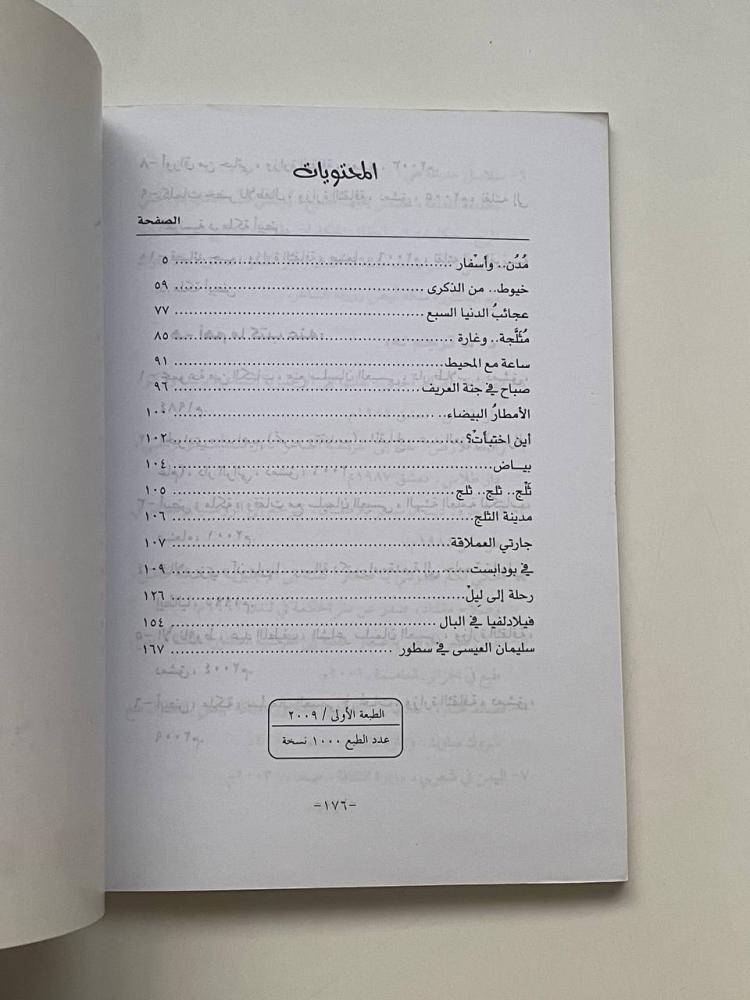 المحتويات
الصفحة
مُدُن.. وأسْفار ............................................... ٥
خيوط.. من الذكرى ............................................... ٥٩
عجائبُ الدنيا السبع ............................................... ٧٧
مُثَلَّجة.. وغارة ............................................... ٨٥
ساعة مع المحيط ............................................... ٩١
صباح في جنة العريف ............................................... ٩٦
الأمطارُ البيضاء ............................................... ١٠٠
أين اختبأتْ؟ ............................................... ١٠٢
بيــاض ............................................... ١٠٤
ثَلْج.. ثلج.. ثلج ............................................... ١٠٥
مدينة الثلج ............................................... ١٠٦
جارتي العملاقة ............................................... ١٠٧
في بودابست ............................................... ١٠٩
رحلة إلى لِيلْ ............................................... ١٢٦
فيلادلفيا في البال ............................................... ١٥٤
سليمان العيسى في سطور ............................................... ١٦٧
الطبعة الأولى / ٢٠٠٩
عدد الطبع ١٠٠٠ نسخة
-١٧٦-